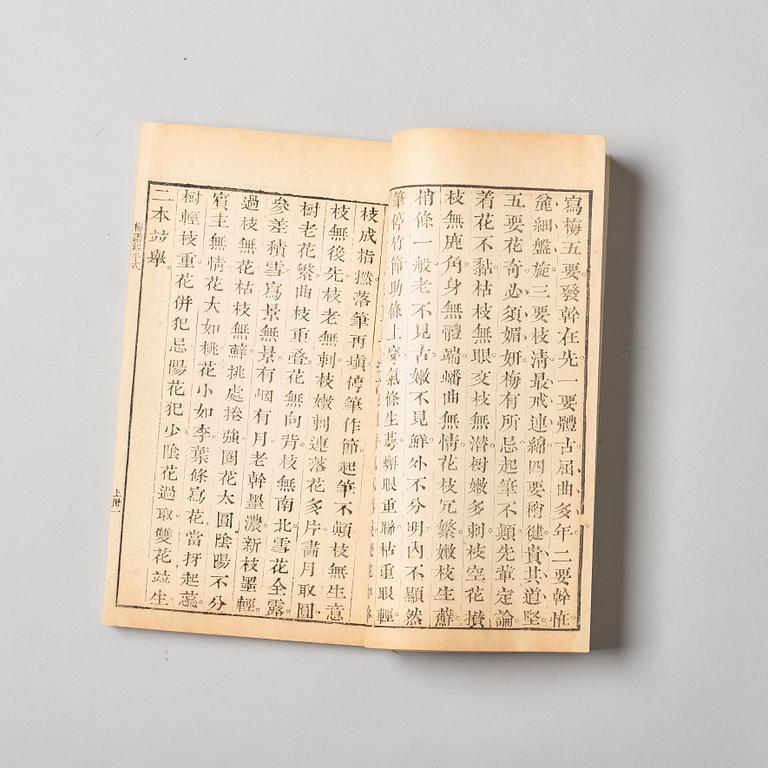 寫梅五要。發幹在先一要體古屈曲多年二要幹怪
麓細盤旋三要枝淸最戒連綿四要梢健貴其遒堅。
五要花奇必須媚妍。梅有所忌起筆不顛先輩定論
着花不黏枯枝無眼交枝無潛樹嫩多刺枝空花攢
枝無鹿角身無體端蟠曲無情花枝冗繁嫩枝生蘚
梢條一般老不見古嫩不見鮮外不分明內不顯然
筆停竹節助條上穿氣條生萼蠏眼重聯枯重眼輕
枝成指撚落筆再塡停筆作節。起筆不顛枝無生意
枝無後先枝老無刺枝嫩刺連落花多片畵月取圓
樹老花繁曲枝重叠。花無向背枝無南北雪花全露。
參差積雪。寫景無景有烟有月老幹墨濃新枝墨輕
過枝無花枯枝無蘚挑處捲強圈花太圓陰陽不分
賓主無情花大如桃花小如李。葉條寫花當枒起蕊。
樹輕枝重花併犯忌陽花犯少陰花過取雙花竝生
二本竝舉。
上冊一